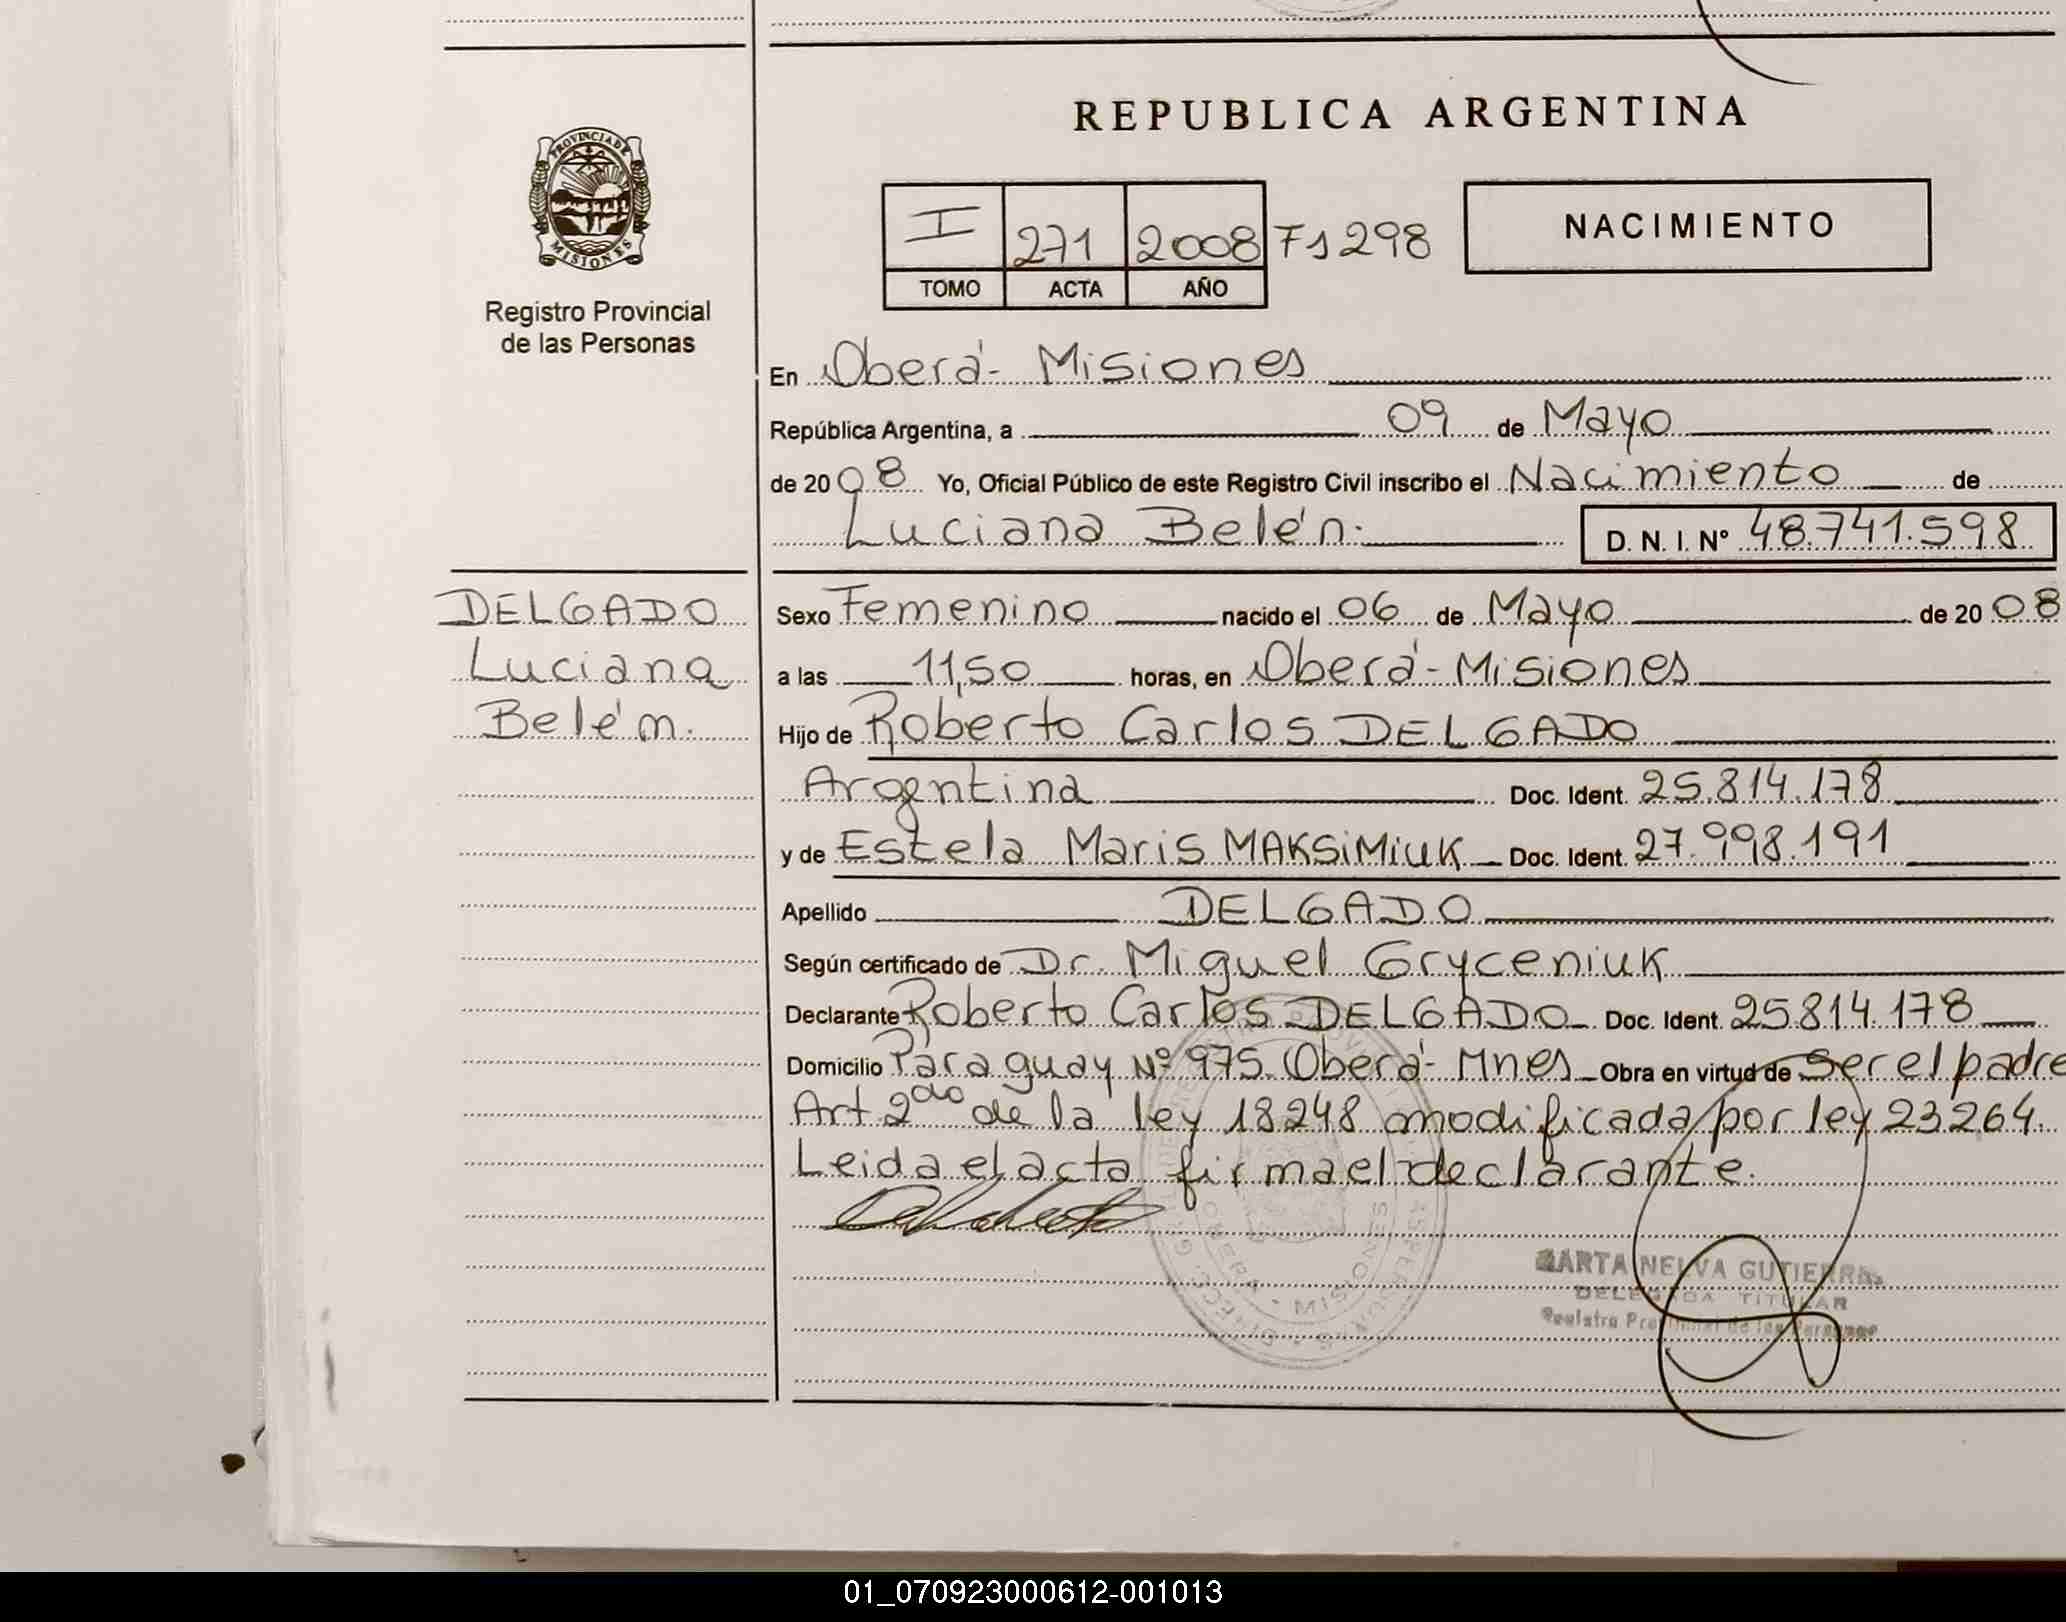 REPUBLICA ARGENTINA
PROVINCIA DE
MISIONES
Registro Provincial
de las Personas
I 271 2008 Fs 298
TOMO ACTA AÑO
NACIMIENTO
En Oberá - Misiones
República Argentina, a 09 de Mayo
de 2008 Yo, Oficial Público de este Registro Civil inscribo el Nacimiento de
Luciana Belén. D. N. I. Nº 48.741.598
DELGADO
Luciana
Belém.
Sexo Femenino nacido el 06 de Mayo de 2008
a las 11,50 horas, en Oberá - Misiones
Hijo de Roberto Carlos DELGADO
Argentina Doc. Ident. 25.814.178
y de Estela Maris MAKSiMiuK Doc. Ident. 27.998.191
Apellido DELGADO
Según certificado de Dr. Miguel Gryceniuk
Declarante Roberto Carlos DELGADO Doc. Ident. 25814.178
Domicilio Paraguay Nº 975. Oberá - Mnes Obra en virtud de Ser el padre
Art. 2do de la ley 18248 modificada por ley 23264.
Leida el acta firma el declarante.
OBERA - MISIONES
MARTA NELVA GUTIERREZ
DELEGADA TITULAR
Registro Provincial de las Personas
01_070923000612-001013